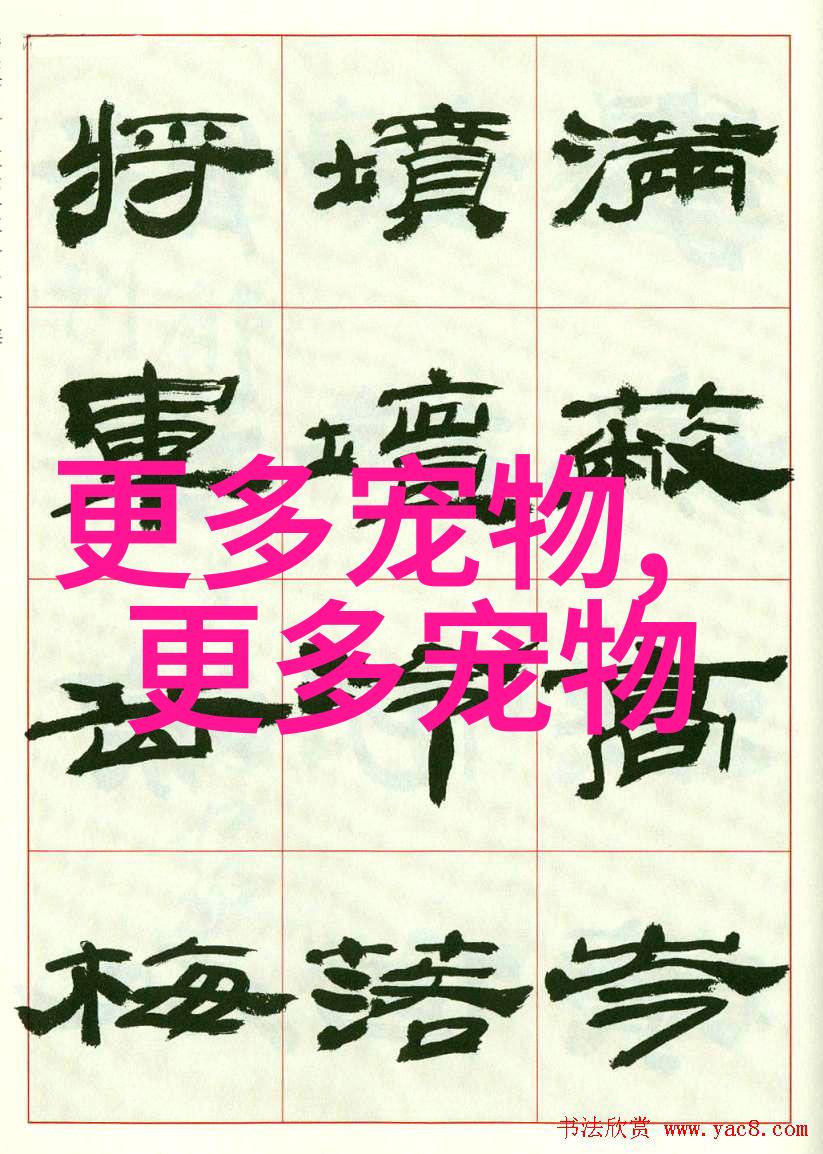 滿蔽高岑
墳落
將軍梅
更多宠物,
更多宠物
书法欣赏 www.yac8.com